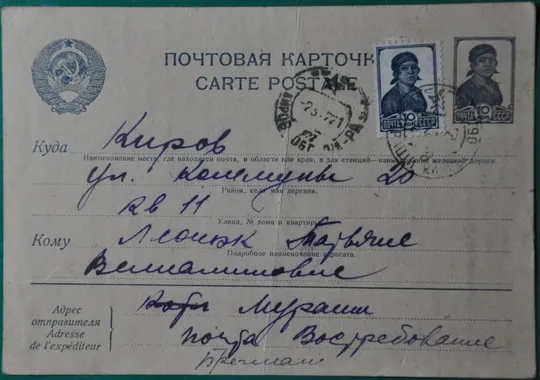 ПОЧТОВАЯ КАРТОЧК
CARTE POSTALE
10 ПОЧТА СССР
10
Куда Киров
Наименование места, где находится почта, и области или края, а для станций наименование железной дороги.
ул. Коммуны 20
Район, село или деревня.
кв 11
Улица, № дома и квартиры.
Кому
Подробное наименование адресата.
Вениаминовне
Адрес отправителя
Adresse de l'expéditeur
Мураши
почта Востребование